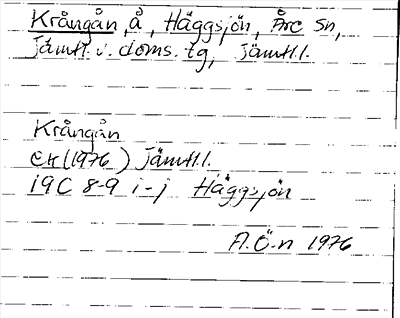 Krångån, å, Häggsjön, Åre Sn,
Jämtl. v. doms. tg, Jämtl. l.
Krångån
EK (1976) Jämtl. l.
19C 8-9 i-j Häggsjön
A.Ö-n 1976